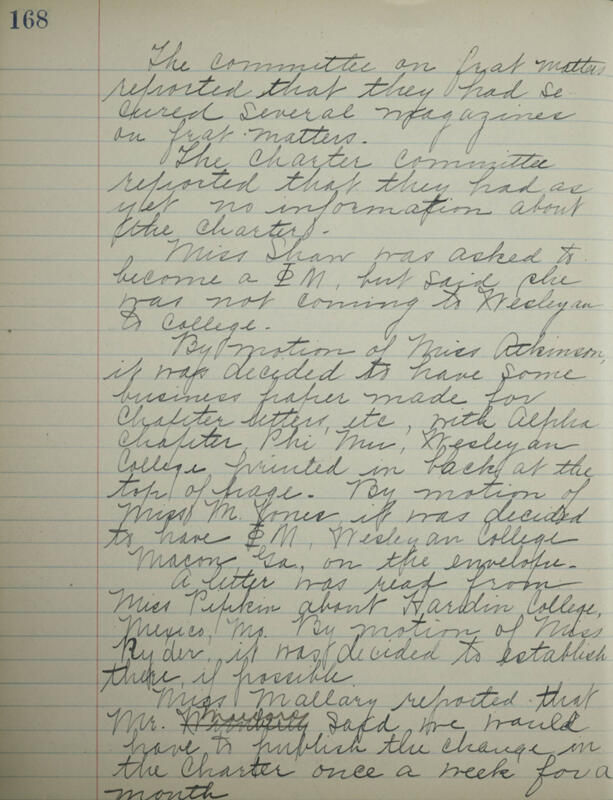 168
The committee on frat matters
reported that they had se
cured several magazines
on frat matters.
The charter committee
reported that they had as
yet no information about
the charter.
Miss Shaw was asked to
become a ΦM, but said she
was not coming to Wesleyan
to college.
By motion of Miss Atkinson,
it was decided to have some
business paper made for
chapter letters, etc, with Alpha
Chapter, Phi Mu, Wesleyan
College printed in black at the
top of page. By motion of
Miss M. Jones it was decided
to have ΦM, Wesleyan College
Macon, Ga., on the envelope.
A letter was read from
Miss Pipkin about Hardin College,
Mexico, Mo. By motion of Miss
Ryder, it was decided to establish
there, if possible.
Miss Mallary reported that
Mr. said we would
have to publish the change in
the charter once a week for a
month